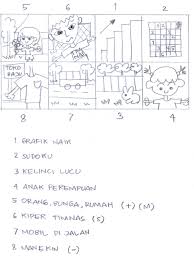 5 6 1 2
TOKO
BAJU
8 7 3 4
1 GRAFIK NAIK
2 SUDOKU
3 KELINCI LUCU
4 ANAK PEREMPUAN
5 ORANG, BUNGA, RUMAH (+) (M)
6 KIPER TIMNAS (S)
7 MOBIL DI JALAN
8 MANEKIN (-)